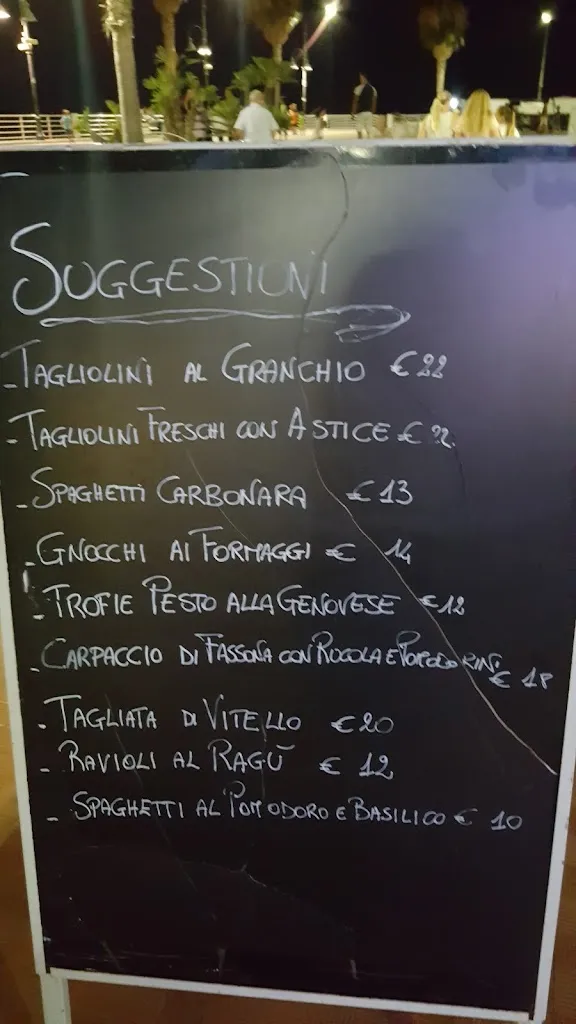 SUGGESTIONI
- TAGLIOLINI AL GRANCHIO €22
- TAGLIOLINI FRESCHI CON ASTICE € 22
- SPAGHETTI CARBONARA €13
- GNOCCHI AI FORMAGGI € 14
- TROFIE PESTO ALLA GENOVESE €12
- CARPACCIO DI FASSONA CON RUCOLA E POMODORINI € 18
- TAGLIATA DI VITELLO €20
- RAVIOLI AL RAGÙ € 12
- SPAGHETTI AL POMODORO E BASILICO € 10